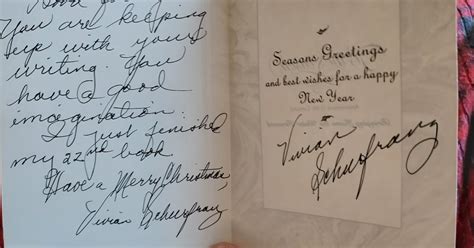 You are keeping
up with your
writing. You
have a good
imagination.
I just finished
my 22nd book
Have a Merry Christmas,
Vivian Schurfranz
Seasons Greetings
and best wishes for a happy
New Year
Vivian
Schurfranz